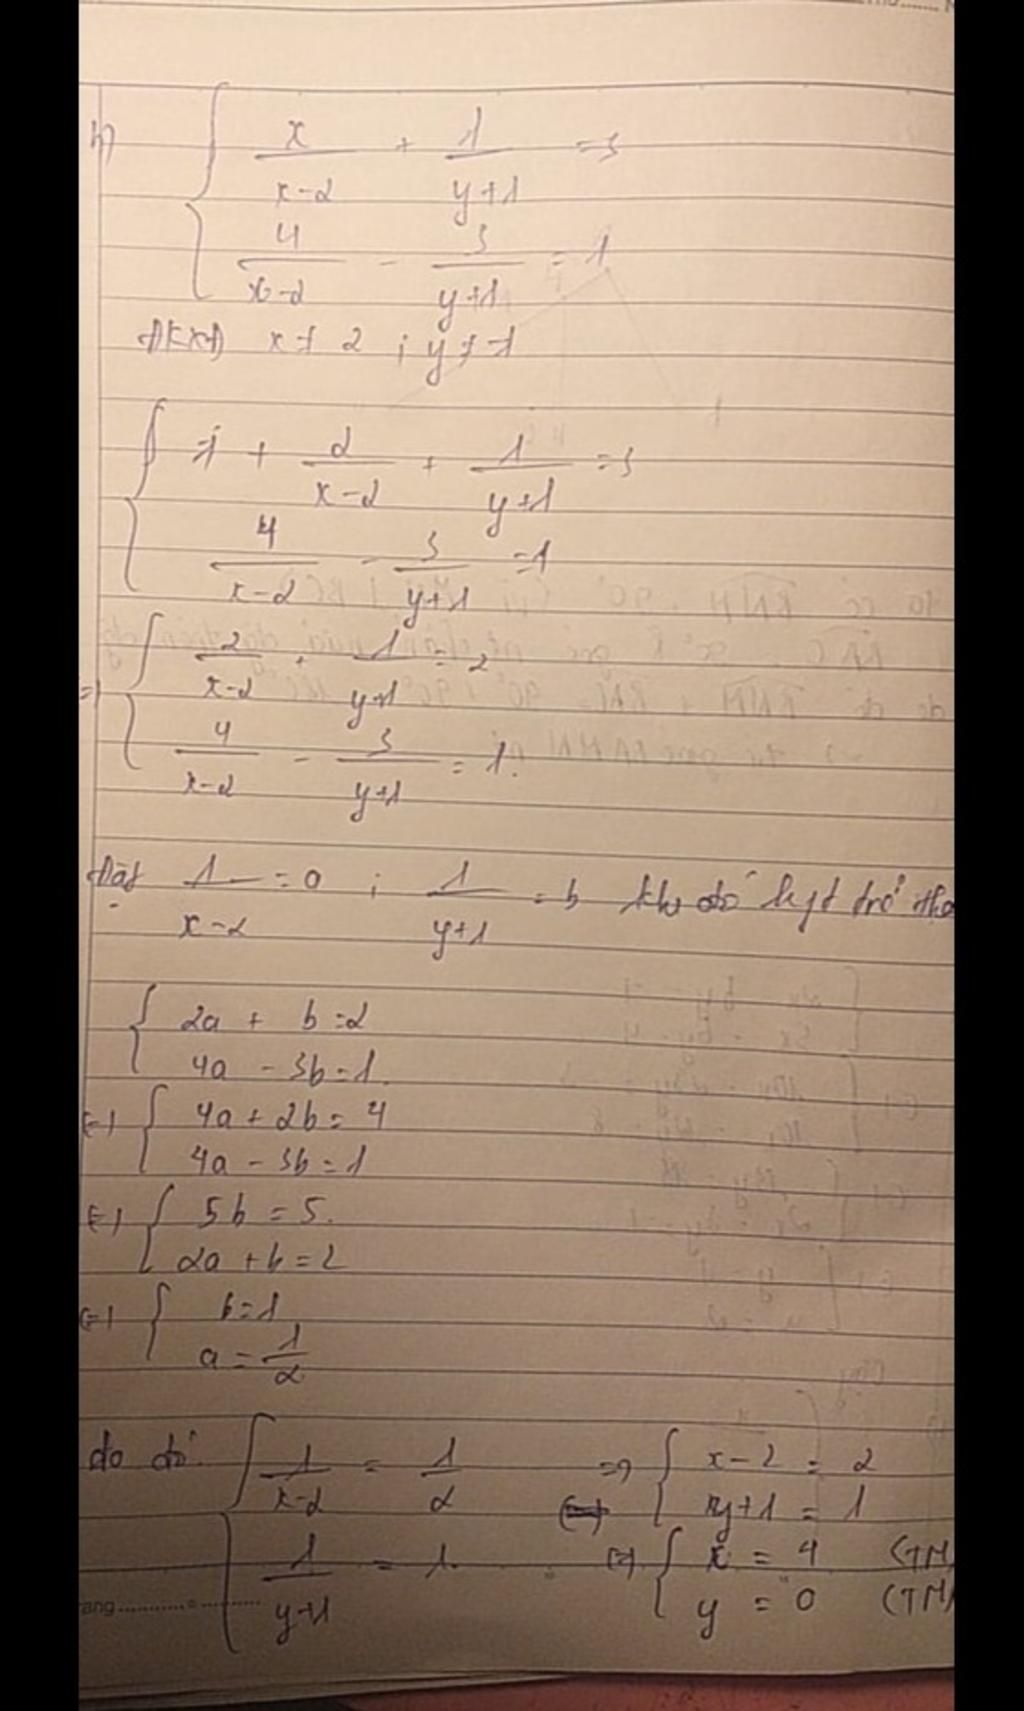 h) { x/(x-2) + 1/(y+1) = 3
4/(x-2) - 3/(y+1) = 1
ĐKXĐ x ≠ 2 ; y ≠ -1
{ 1 + 2/(x-2) + 1/(y+1) = 3
4/(x-2) - 3/(y+1) = 1
=) { 2/(x-2) + 1/(y+1) = 2
4/(x-2) - 3/(y+1) = 1.
Đặt 1/(x-2) = a ; 1/(y+1) = b khi đó hpt trở
{ 2a + b = 2
4a - 3b = 1.
(=) { 4a + 2b = 4
4a - 3b = 1
(=) { 5b = 5.
2a + b = 2
(=) { b = 1
a = 1/2
do đó { 1/(x-2) = 1/2 => { x - 2 = 2
y + 1 = 1
1/(y+1) = 1. (=) { x = 4 (TM)
y = 0 (TM)